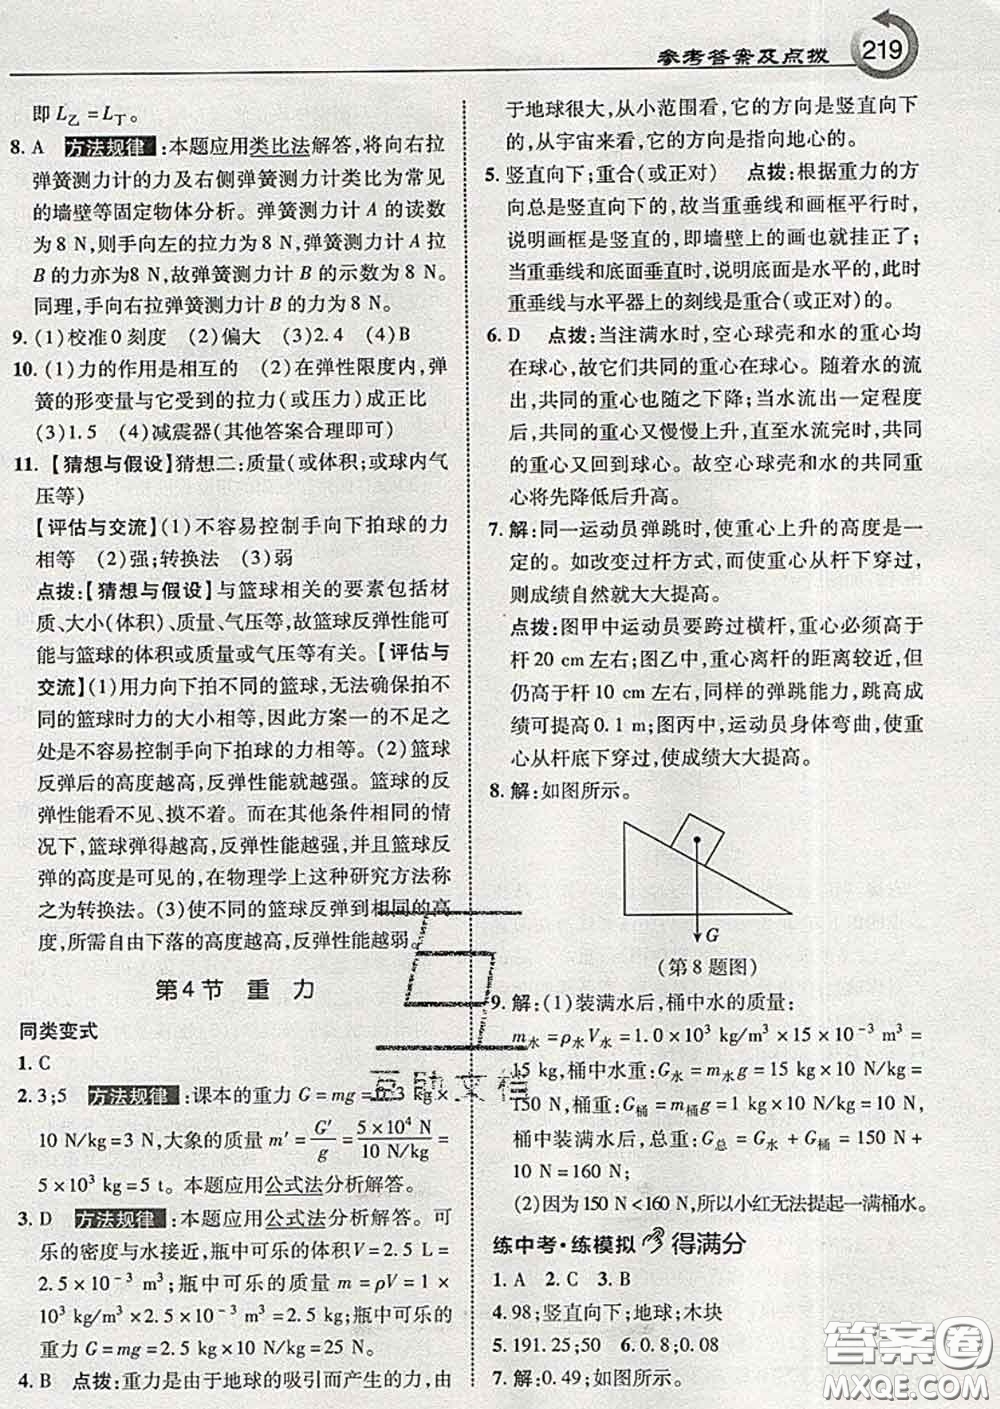 参考答案及点拨
219
即 L乙 = L丁。
8. A 方法规律:本题应用类比法解答,将向右拉
弹簧测力计的力及右侧弹簧测力计类比为常见
的墙壁等固定物体分析。弹簧测力计 A 的读数
为 8 N,则手向左的拉力为 8 N,弹簧测力计 A 拉
B 的力亦为8 N,故弹簧测力计 B 的示数为 8 N。
同理,手向右拉弹簧测力计 B 的力为 8 N。
9. (1)校准 0 刻度 (2)偏大 (3)2.4 (4)B
10. (1)力的作用是相互的 (2)在弹性限度内,弹
簧的形变量与它受到的拉力(或压力)成正比
(3)1.5 (4)减震器(其他答案合理即可)
11. 【猜想与假设】猜想二:质量(或体积;或球内气
压等)
【评估与交流】(1)不容易控制手向下拍球的力
相等 (2)强;转换法 (3)弱
点拨:【猜想与假设】与篮球相关的要素包括材
质、大小(体积)、质量、气压等,故篮球反弹性能可
能与篮球的体积或质量或气压等有关。【评估与
交流】(1)用力向下拍不同的篮球,无法确保拍不
同的篮球时力的大小相等,因此方案一的不足之
处是不容易控制手向下拍球的力相等。(2)篮球
反弹后的高度越高,反弹性能就越强。篮球的反
弹性能看不见、摸不着。而在其他条件相同的情
况下,篮球弹得越高,反弹性能越强,并且篮球反
弹的高度是可见的,在物理学上这种研究方法称
之为转换法。(3)使不同的篮球反弹到相同的高
度,所需自由下落的高度越高,反弹性能越弱。
第 4 节 重 力
同类变式
1. C
2. 3;5 方法规律:课本的重力 G = mg = 0.3 kg ×
10 N/kg = 3 N,大象的质量 m′ = G′/g = (5 × 10⁴ N)/(10 N/kg) =
5 × 10³ kg = 5 t。本题应用公式法分析解答。
3. D 方法规律:本题应用公式法分析解答。可
乐的密度与水接近,瓶中可乐的体积 V = 2.5 L =
2.5 × 10⁻³ m³;瓶中可乐的质量 m = ρV = 1 ×
10³ kg/m³ × 2.5 × 10⁻³ m³ = 2.5 kg;瓶中可乐的
重力 G = mg = 2.5 kg × 10 N/kg = 25 N。
4. B 点拨:重力是由于地球的吸引而产生的力,由
于地球很大,从小范围看,它的方向是竖直向下
的,从宇宙来看,它的方向是指向地心的。
5. 竖直向下;重合(或正对) 点拨:根据重力的方
向总是竖直向下的,故当重垂线和画框平行时,
说明画框是竖直的,即墙壁上的画也就挂正了;
当重垂线和底面垂直时,说明底面是水平的,此时
重垂线与水平器上的刻线是重合(或正对)的。
6. D 点拨:当注满水时,空心球壳和水的重心均
在球心,故它们共同的重心在球心。随着水的流
出,共同的重心也随之下降;当水流出一定程度
后,共同的重心又慢慢上升,直至水流完时,共同
的重心又回到球心。故空心球壳和水的共同重
心将先降低后升高。
7. 解:同一运动员弹跳时,使重心上升的高度是一
定的。如改变过杆方式,而使重心从杆下穿过,
则成绩自然就大大提高。
点拨:图甲中运动员要跨过横杆,重心必须高于
杆 20 cm 左右;图乙中,重心离杆的距离较近,但
仍高于杆 10 cm 左右,同样的弹跳能力,跳高成
绩可提高 0.1 m;图丙中,运动员身体弯曲,使重
心从杆底下穿过,使成绩大大提高。
8. 解:如图所示。
G
(第 8 题图)
9. 解:(1)装满水后,桶中水的质量:
m水 = ρ水V水 = 1.0 × 10³ kg/m³ × 15 × 10⁻³ m³ =
15 kg,水重:G水 = m水g = 15 kg × 10 N/kg =
150 N,桶重:G桶 = m桶g = 1 kg × 10 N/kg = 10 N,
桶中装满水后,总重:G总 = G水 + G桶 = 150 N +
10 N = 160 N;
(2)因为 150 N < 160 N,所以小红无法提起一满桶水。
练中考·练模拟 得满分
1. A 2. C 3. B
4. 98;竖直向下;地球;木块
5. 191.25;50 6. 0.8;0.08
7. 解:0.49;如图所示。
答案圈
MXQE.COM